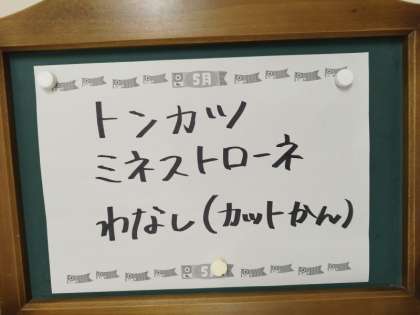 5月
トンカツ
ミネストローネ
わなし(カットかん)
5